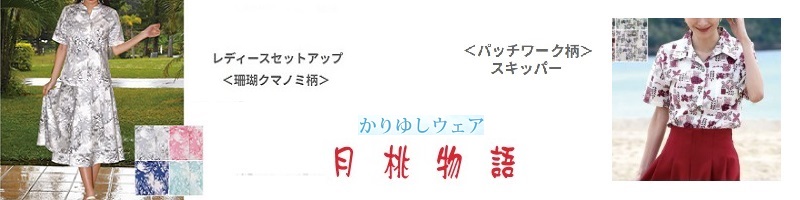 レディースセットアップ
＜珊瑚クマノミ柄＞
＜パッチワーク柄＞
スキッパー
かりゆしウェア
月桃物語